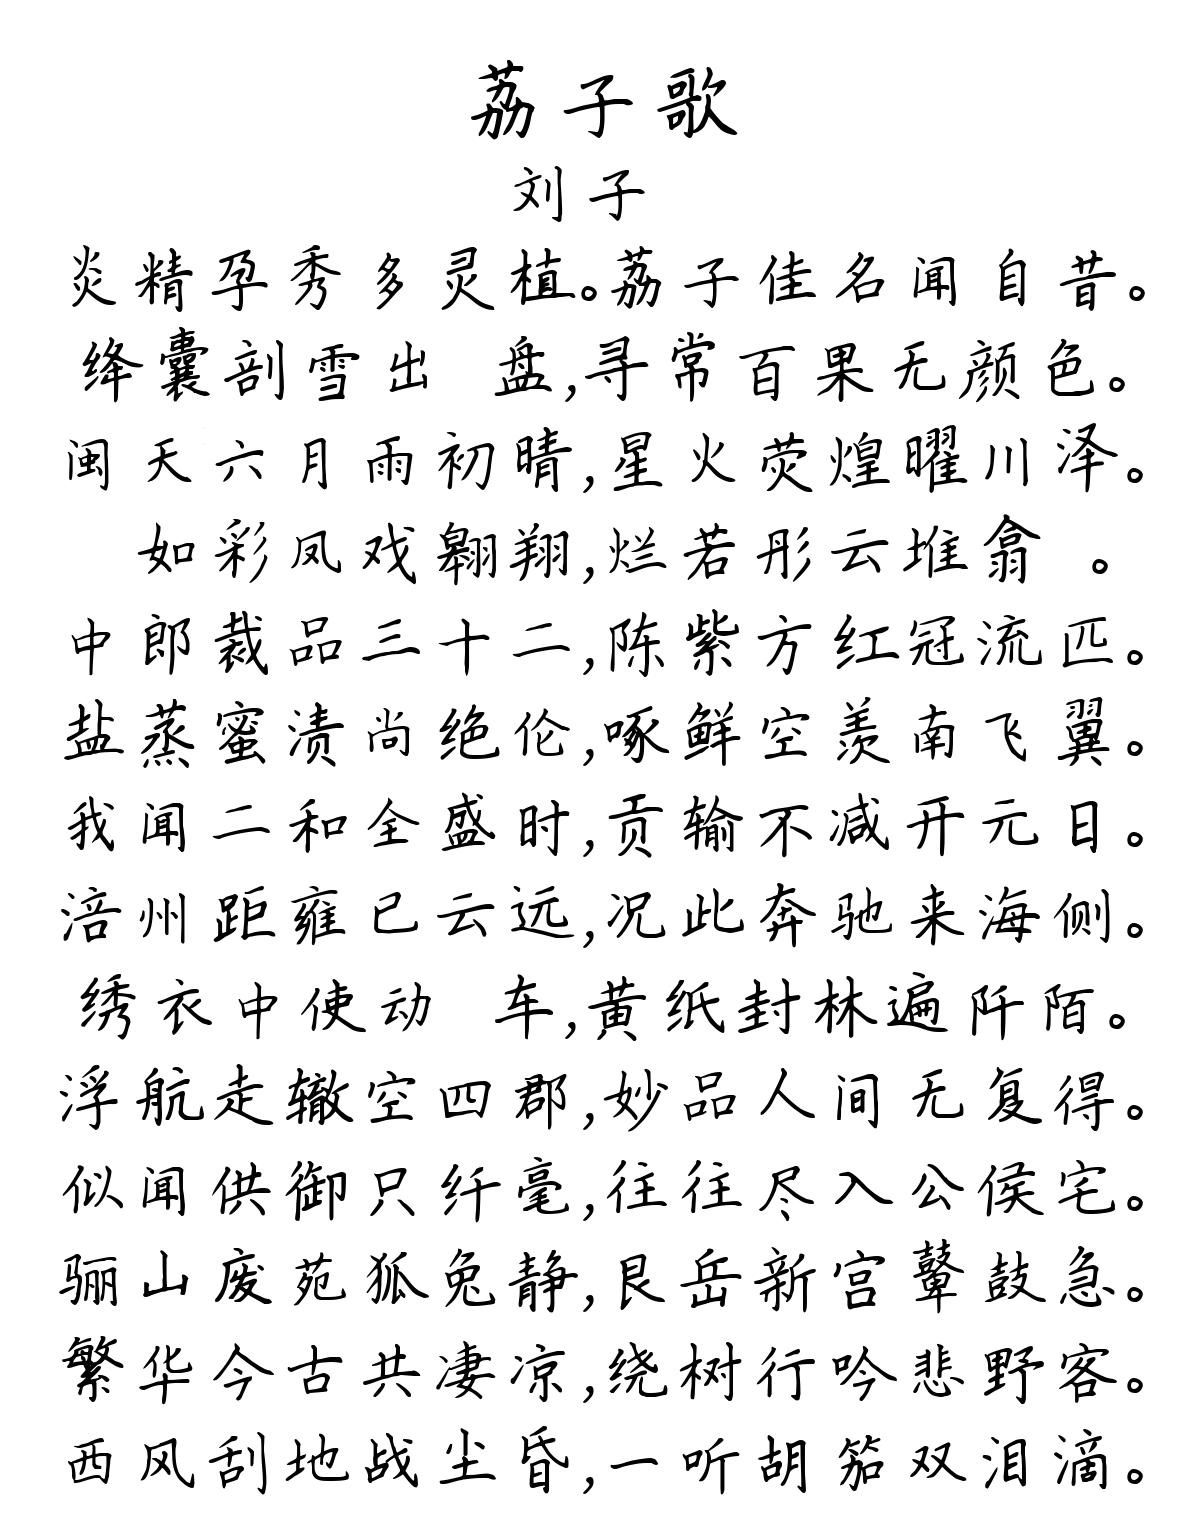 荔子歌
刘子
炎精孕秀多灵植。荔子佳名闻自昔。
绛囊剖雪出 盘,寻常百果无颜色。
闽天六月雨初晴,星火荧煌曜川泽。
如彩凤戏翱翔,烂若彤云堆翕 。
中郎裁品三十二,陈紫方红冠流匹。
盐蒸蜜渍尚绝伦,啄鲜空羡南飞翼。
我闻二和全盛时,贡输不减开元日。
涪州距雍已云远,况此奔驰来海侧。
绣衣中使动 车,黄纸封林遍阡陌。
浮航走辙空四郡,妙品人间无复得。
似闻供御只纤毫,往往尽入公侯宅。
骊山废苑狐兔静,艮岳新宫鼙鼓急。
繁华今古共凄凉,绕树行吟悲野客。
西风刮地战尘昏,一听胡笳双泪滴。